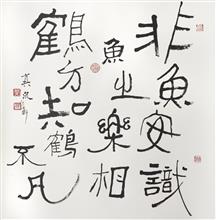 非魚安識
魚之樂相
鶴方知鶴
不凡